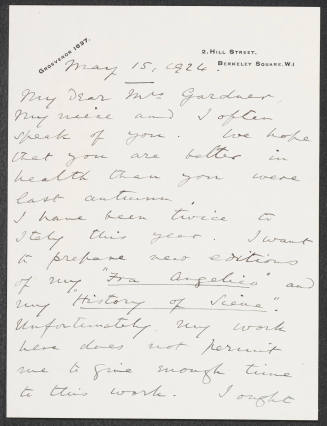 GROSVENOR 1697.
2, HILL STREET.
BERKELEY SQUARE. W.1
May 15, 1924.
My Dear Mrs Gardner,
My niece and I often
speak of you. We hope
that you are better in
health than you were
last autumn.
I have been twice to
Italy this year. I want
to prepare new editions
of my "Fra Angelico" and
my "History of Siena".
Unfortunately my work
here does not permit
me to give enough time
to this work. I ought